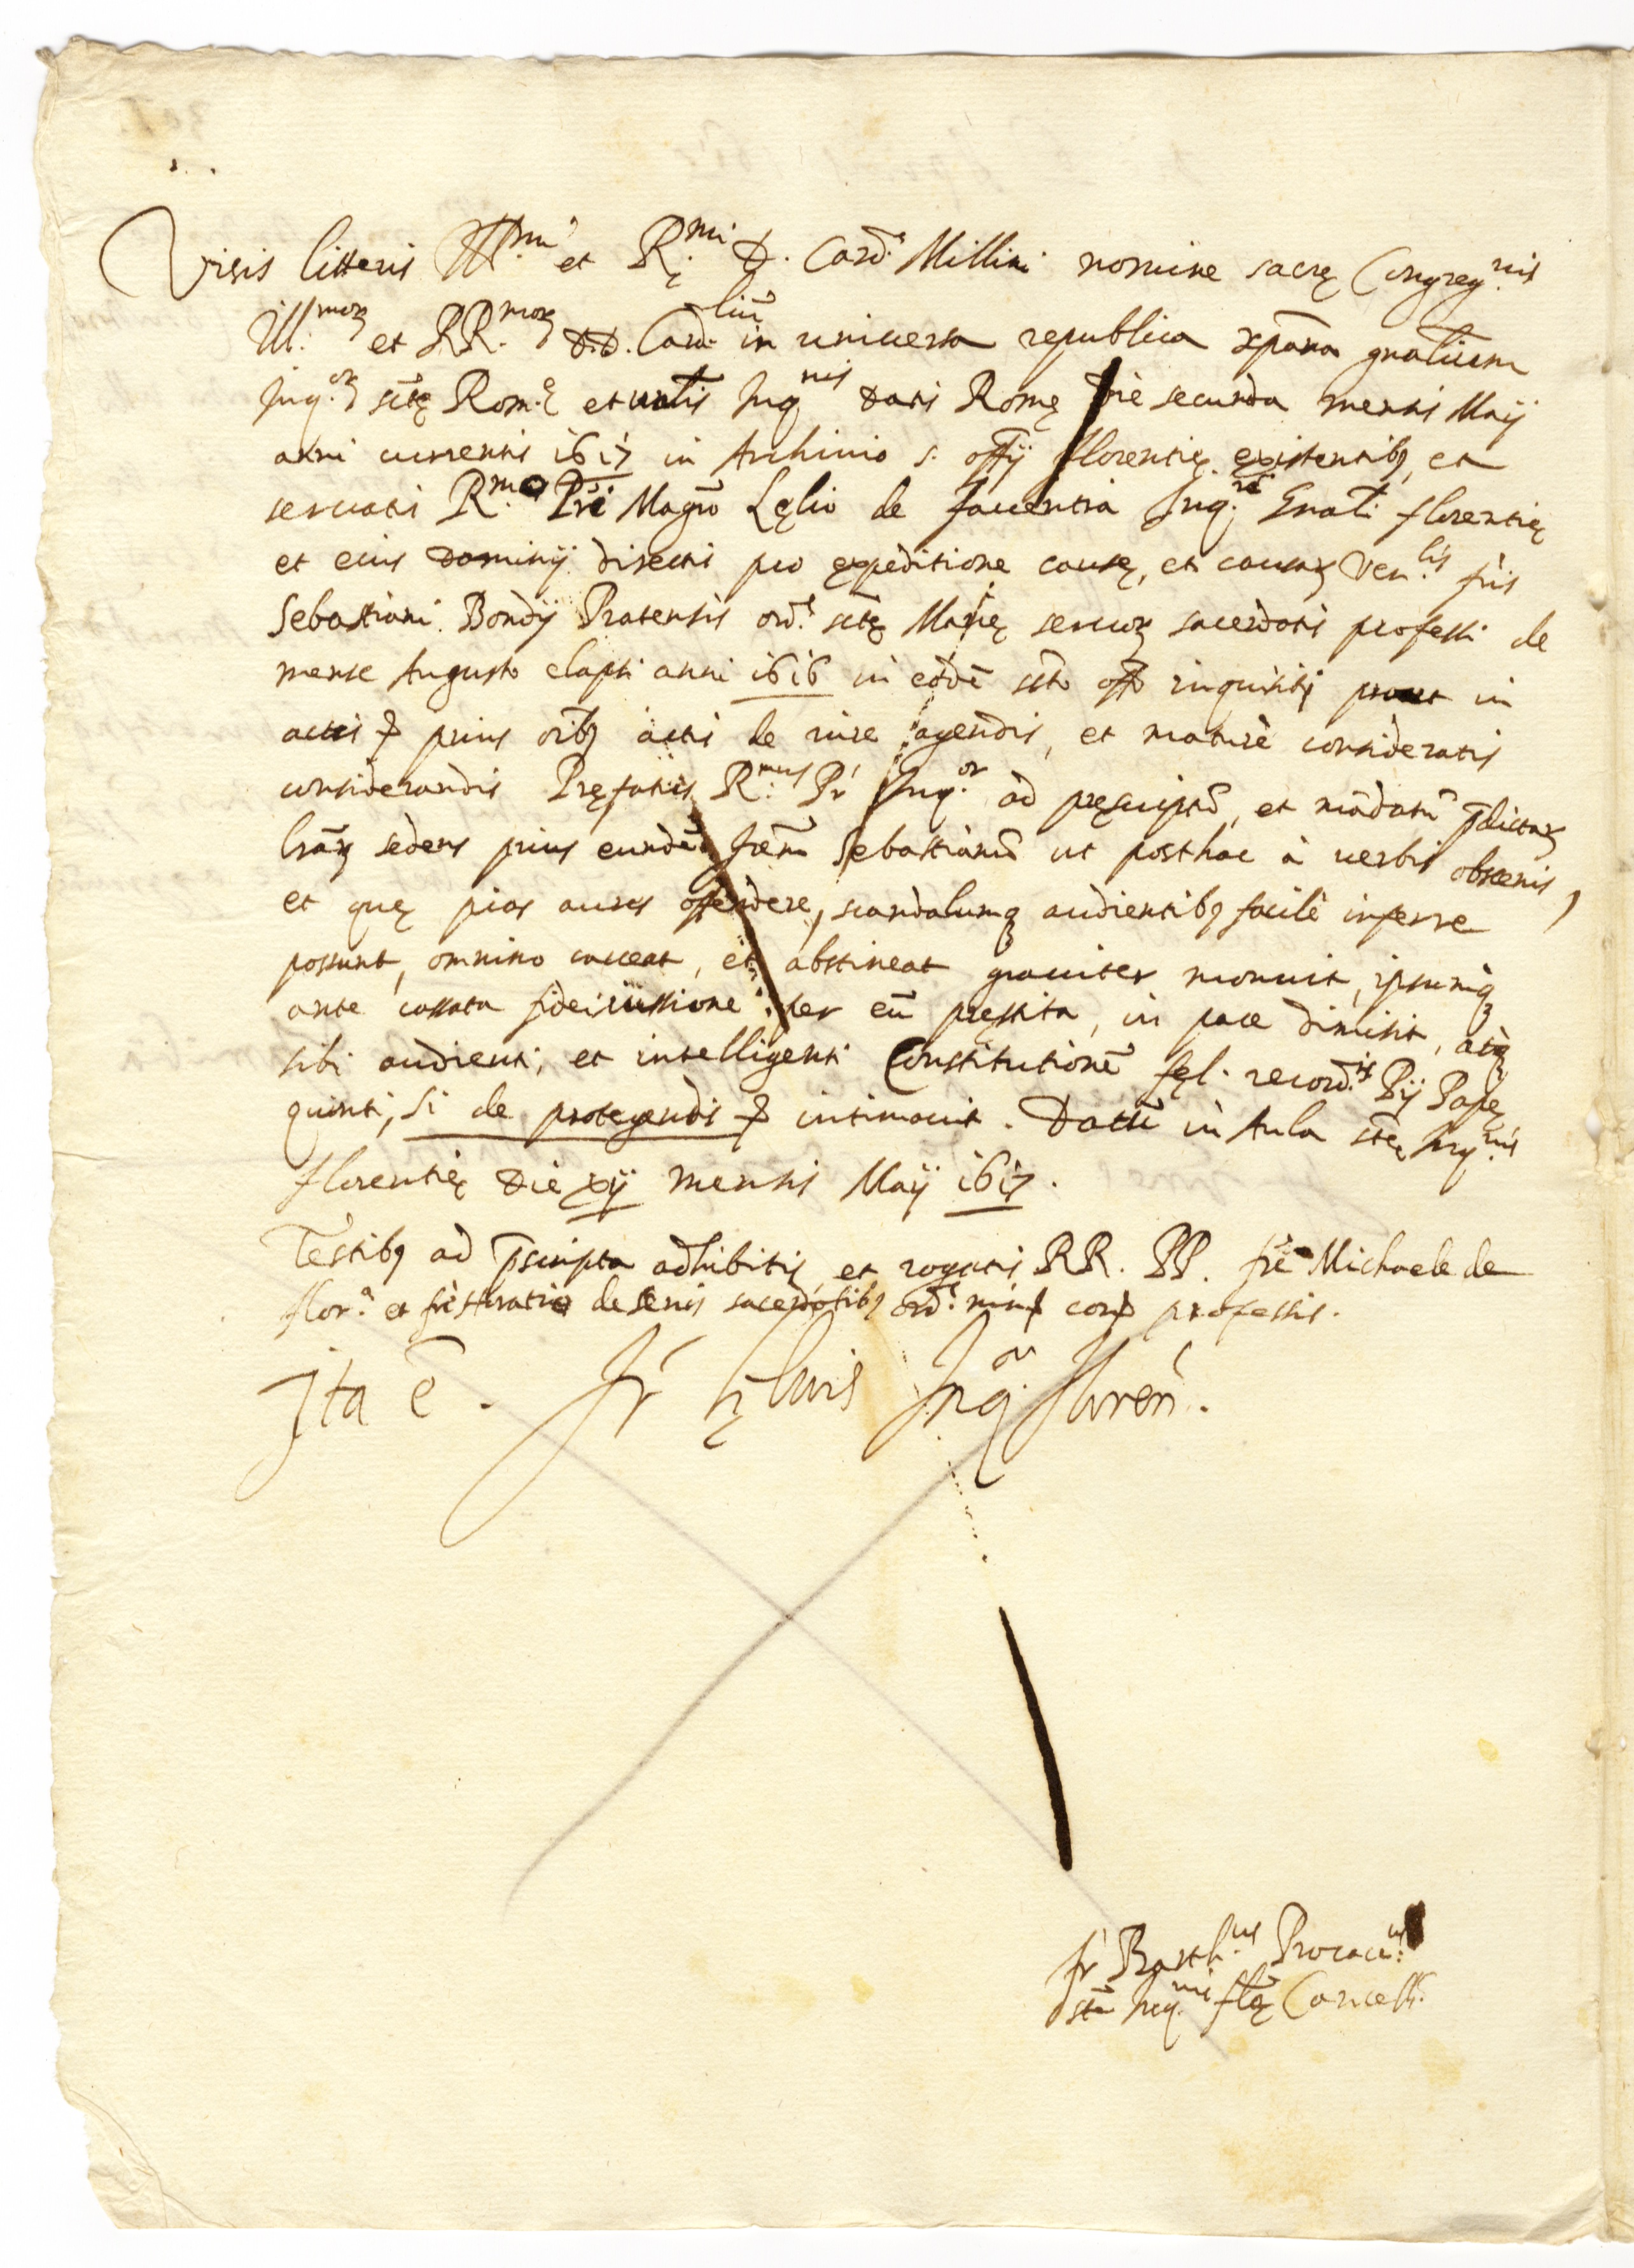 Visis litteris Ill.mi et R.mi D. Card. Millini nomine sacrę Congreg.nis
Ill.morꝫ et RR.morꝫ DD. Card.liũ in universa republica xp̃ana gñalium
Inq.orꝫ sctę Rom.ę et Inq.nis datis Romę die secunda mensis Maij
anni currentis 1617 in Archivio s. offij florentię existentibꝫ, et
servatis R.mo Pre Magro Lęlio de faventia Inq.re Gnali florentię
et eius dominij directis pro expeditione causę, et causarꝫ Ven.lis fris
Sebastiani Bondij Pratensis ord.s sctę Marię servorꝫ sacerdotis professi de
mense Augusto elapsi anni 1616 in eodẽ scto offo inquisiti prout in
actis prius oibꝫ actis de iure agendis, et maturè consideratis
considerandis Pręfatus R.mus Pr Inq.or ad pręscriptũ, et mãdatũ p̃dictarꝫ
lrarꝫ sedens prius eundẽ frẽm Sebastianũ ut posthac à verbis obscenis,
et quę pias aures offendere, scandalumqꝫ audientibꝫ facilè inferre
possunt, omnino caveat, et abstineat graviter monuit, ipsumqꝫ
ante cassata fideiussione per eũ pręstita, in pace dimisit, atqꝫ
sibi audienti, et intelligenti Constitutionẽ fęl. record.is Pij Papę
quinti, Si de protegendis intimavit. Datũ in Aula sctę Inq.nis
florentię die xij mensis Maij 1617.
Testibꝫ ad p̃scripta adhibitis, et rogatis RR. PP. fre Michaele de
flor.a et fre de Senis sacerdotibꝫ ord.s min conv professis.
Ita ẽ. Fr Lęlius Inq.or floren.
fr Barth.us Procac.us
sctę Inq.nis flę Cancell.